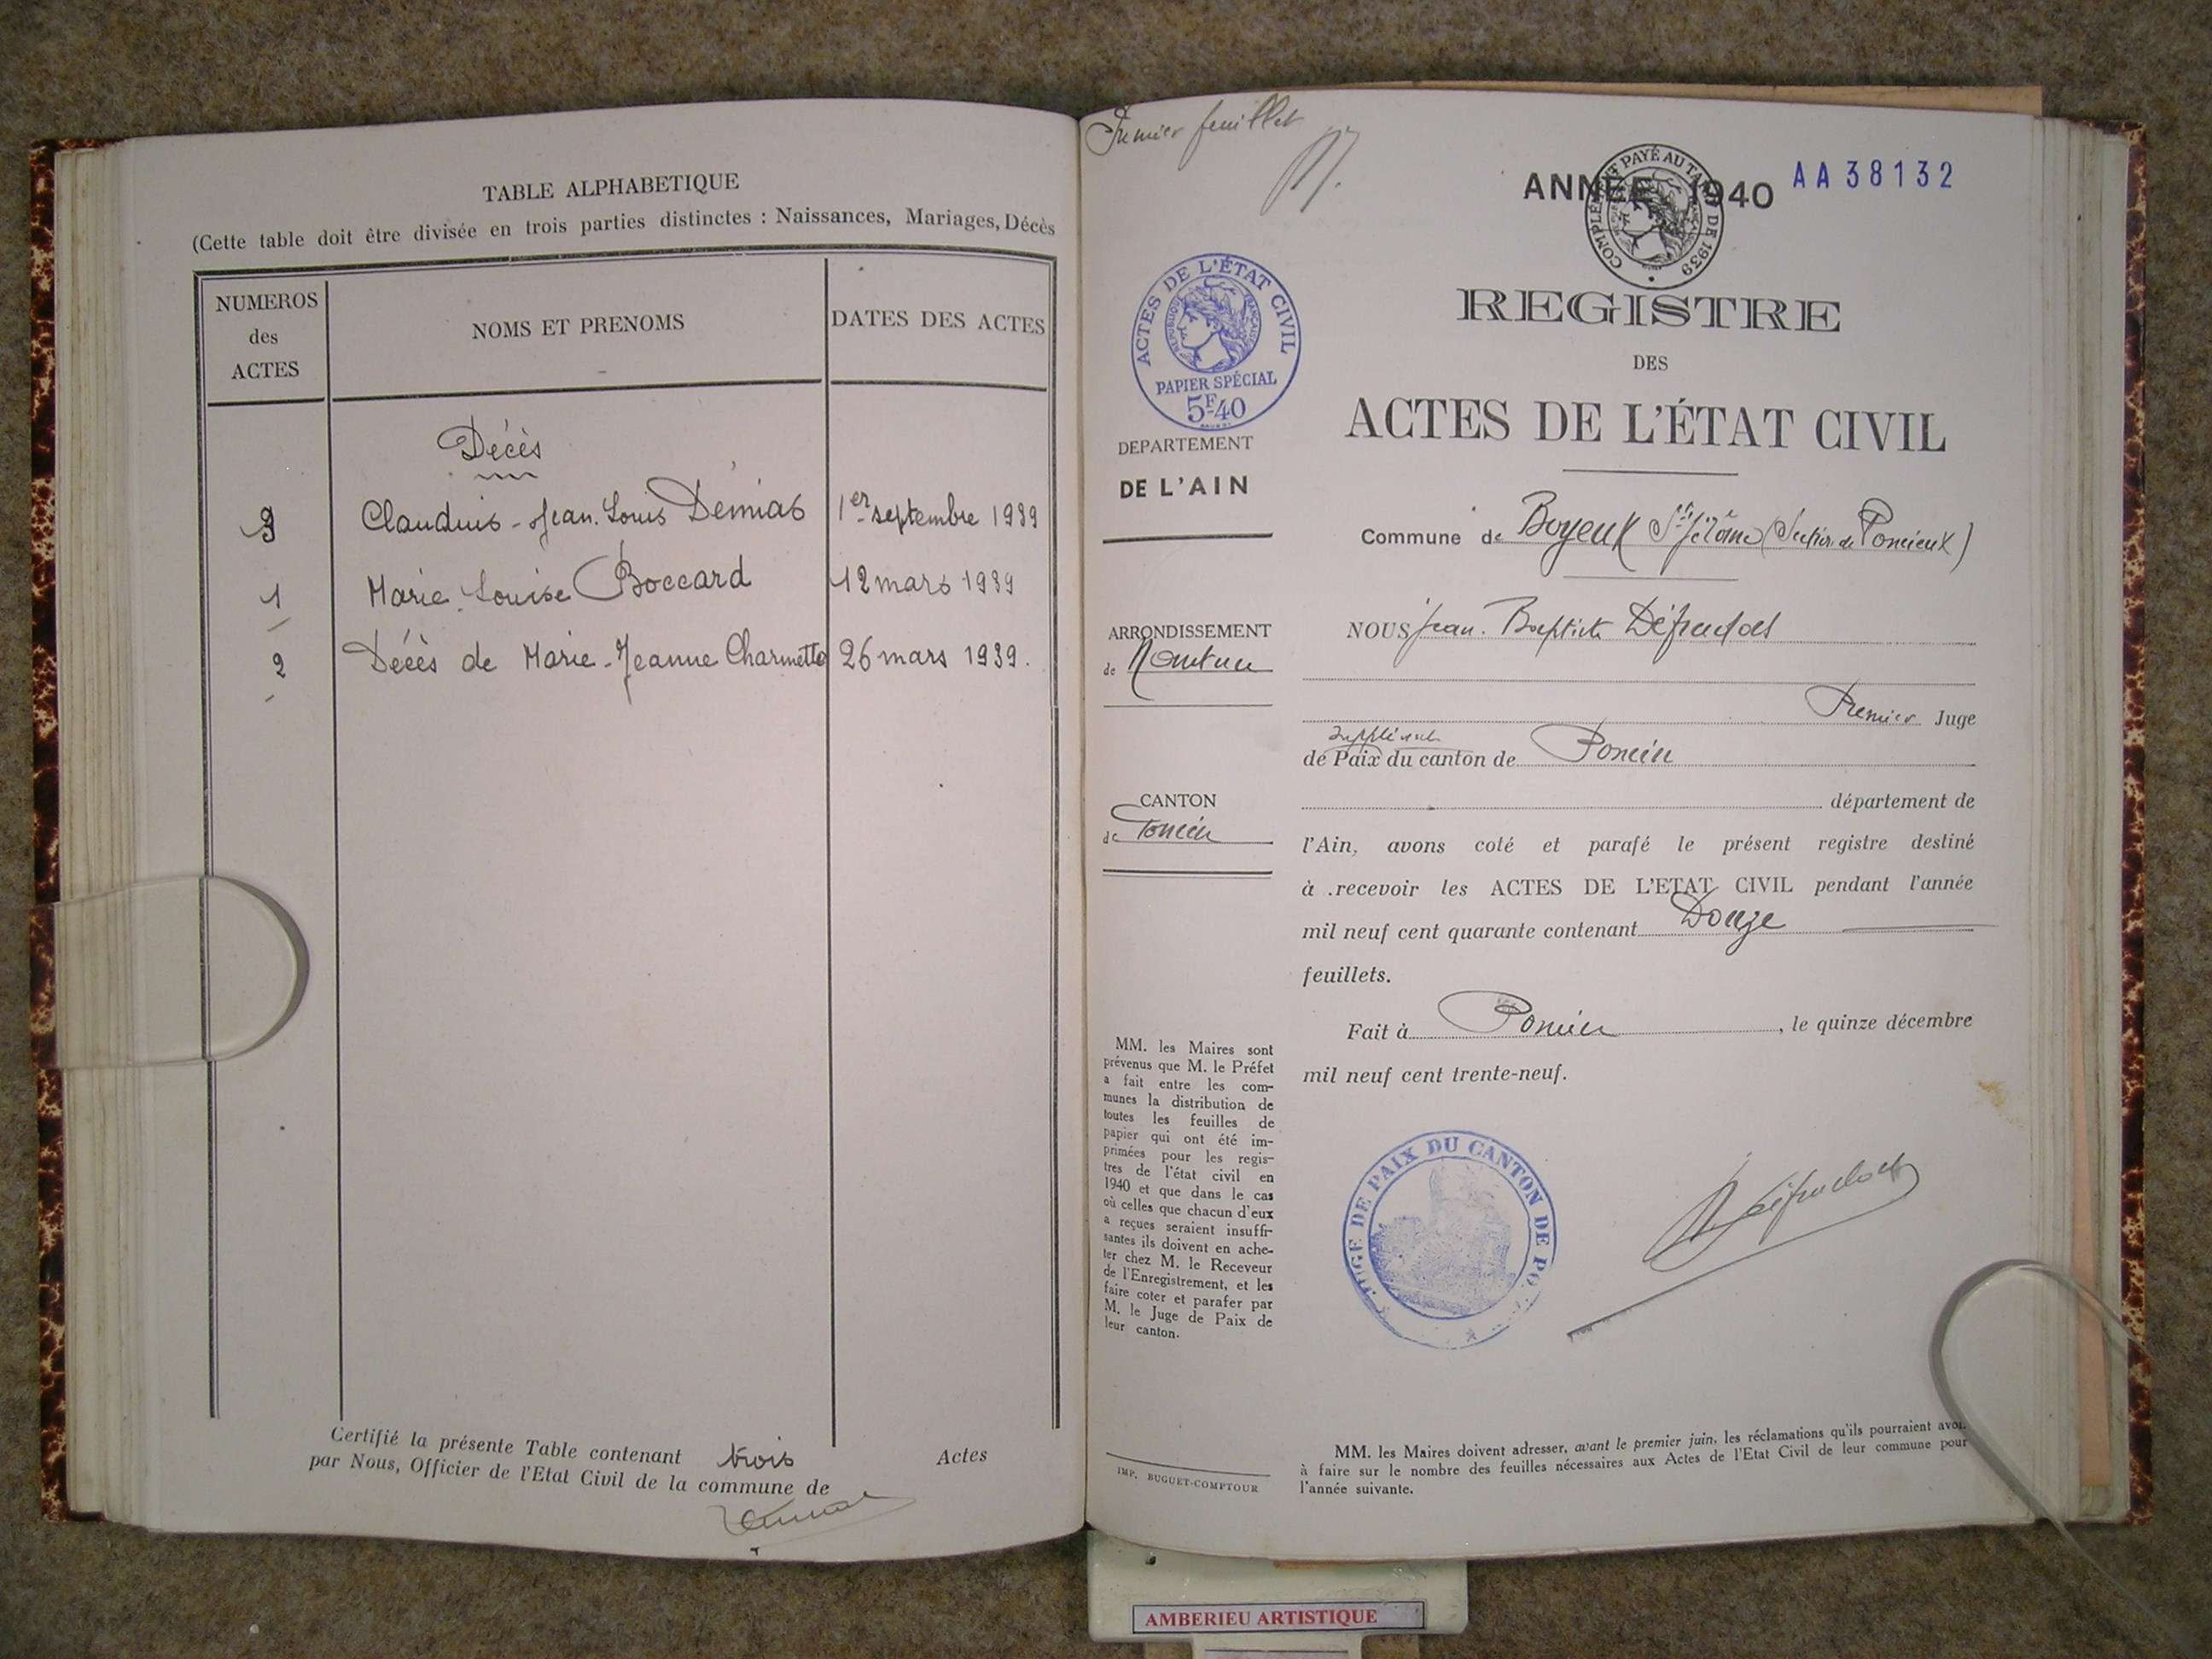 TABLE ALPHABETIQUE
(Cette table doit être divisée en trois parties distinctes : Naissances, Mariages, Décès
NUMEROS
des
ACTES
NOMS ET PRENOMS
DATES DES ACTES
Décès
3 Claudius-Jean-Louis Demias 1er septembre 1939
1 Marie-Louise Boccard 12 mars 1939
2 Décès de Marie-Jeanne Charmette 26 mars 1939.
Certifié la présente Table contenant trois Actes
par Nous, Officier de l'Etat Civil de la commune de
Premier feuillet
ANNÉE 1940
AA38132
COMPLÉMENT PAYÉ AU TARIF DE 1939
ACTES DE L'ÉTAT CIVIL
RÉPUBLIQUE FRANÇAISE
PAPIER SPÉCIAL
5F40
REGISTRE
DES
ACTES DE L'ÉTAT CIVIL
DEPARTEMENT
DE L'AIN
Commune de Boyeux St Jérôme (Section de Poncieux)
ARRONDISSEMENT
de Nantua
CANTON
de Poncin
NOUS Jean-Baptiste
Premier Juge
suppléant
de Paix du canton de Poncin
département de
l'Ain, avons coté et parafé le présent registre destiné
à recevoir les ACTES DE L'ETAT CIVIL pendant l'année
mil neuf cent quarante contenant Douze
feuillets.
Fait à Poncin, le quinze décembre
mil neuf cent trente-neuf.
MM. les Maires sont
prévenus que M. le Préfet
a fait entre les com-
munes la distribution de
toutes les feuilles de
papier qui ont été im-
primées pour les regis-
tres de l'état civil en
1940 et que dans le cas
où celles que chacun d'eux
a reçues seraient insuffi-
santes ils doivent en ache-
ter chez M. le Receveur
de l'Enregistrement, et les
faire coter et parafer par
M. le Juge de Paix de
leur canton.
JUGE DE PAIX DU CANTON DE PO
IMP. BUGUET-COMPTOUR
MM. les Maires doivent adresser, avant le premier juin, les réclamations qu'ils pourraient avoir
à faire sur le nombre des feuilles nécessaires aux Actes de l'Etat Civil de leur commune pour
l'année suivante.
AMBERIEU ARTISTIQUE